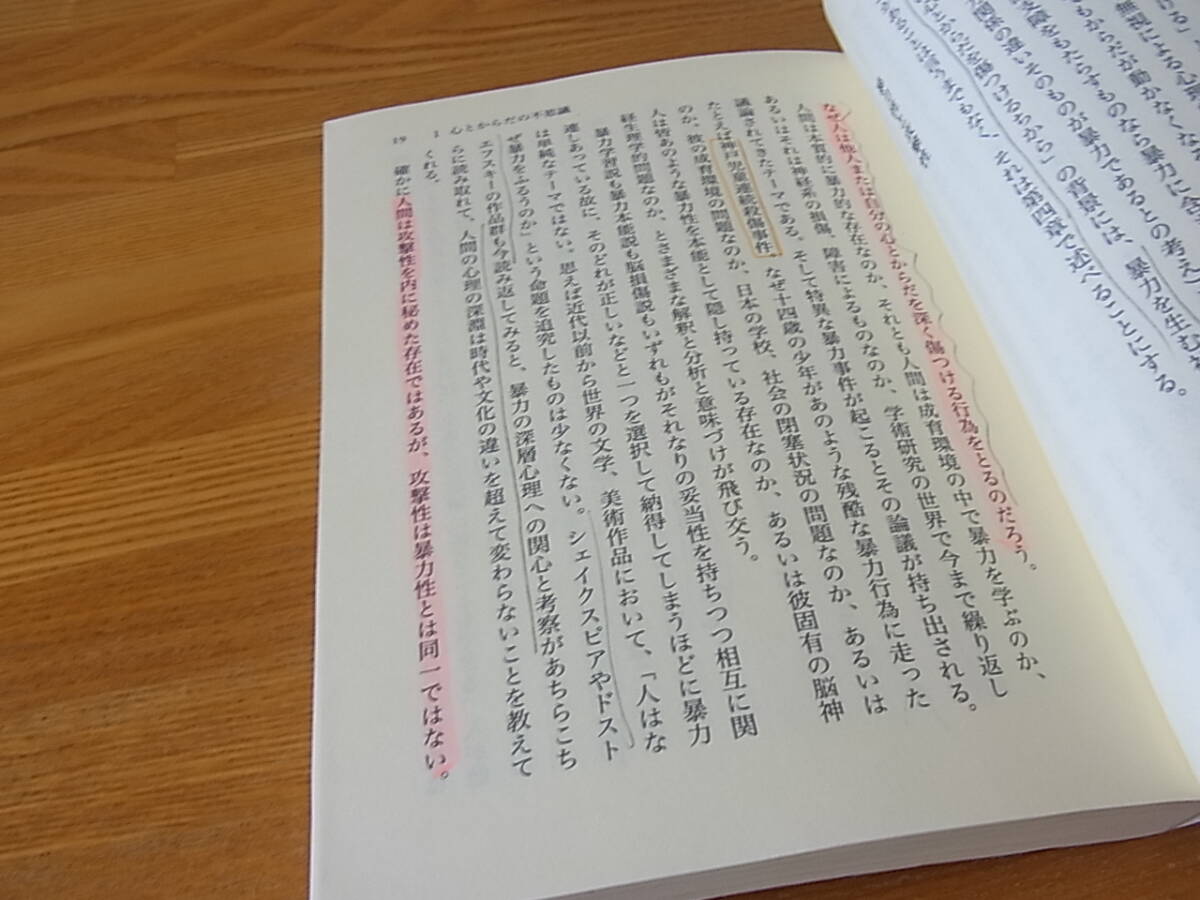 無視による心理
もからだが動かなくな
支障をもたらすものなら暴力に含
関係の違いそのものが暴力であるとの考え
心とからだを傷つけるちから」の背景には、暴力を生む
であることは言うまでもなく、それは第四章で述べることにする。
なぜ人は他人または自分の心とからだを深く傷つける行為をとるのだろう。
人間は本質的に暴力的な存在なのか、それとも人間は成育環境の中で暴力を学ぶのか、
あるいはそれは神経系の損傷、障害によるものなのか、学術研究の世界で今まで繰り返し
議論されてきたテーマである。そして特異な暴力事件が起こるとその論議が持ち出される。
たとえば神戸児童連続殺傷事件、なぜ十四歳の少年があのような残酷な暴力行為に走った
のか、彼の成育環境の問題なのか、日本の学校、社会の閉塞状況の問題なのか、あるいは
人は皆あのような暴力性を本能として隠し持っている存在なのか、あるいは彼固有の脳神
経生理学的問題なのか、とさまざまな解釈と分析と意味づけが飛び交う。
暴力学習説も暴力本能説も脳損傷説もいずれもがそれなりの妥当性を持ちつつ相互に関
連しあっている故に、そのどれが正しいなどと一つを選択して納得してしまうほどに暴力
は単純なテーマではない。思えば近代以前から世界の文学、美術作品において、「人はな
ぜ暴力をふるうのか」という命題を追究したものは少なくない。シェイクスピアやドスト
エフスキーの作品群も今読み返してみると、暴力の深層心理への関心と考察があちらこち
らに読み取れて、人間の心理の深淵は時代や文化の違いを超えて変わらないことを教えて
くれる。
確かに人間は攻撃性を内に秘めた存在ではあるが、攻撃性は暴力性とは同一ではない。
19 1 心とからだの不思議